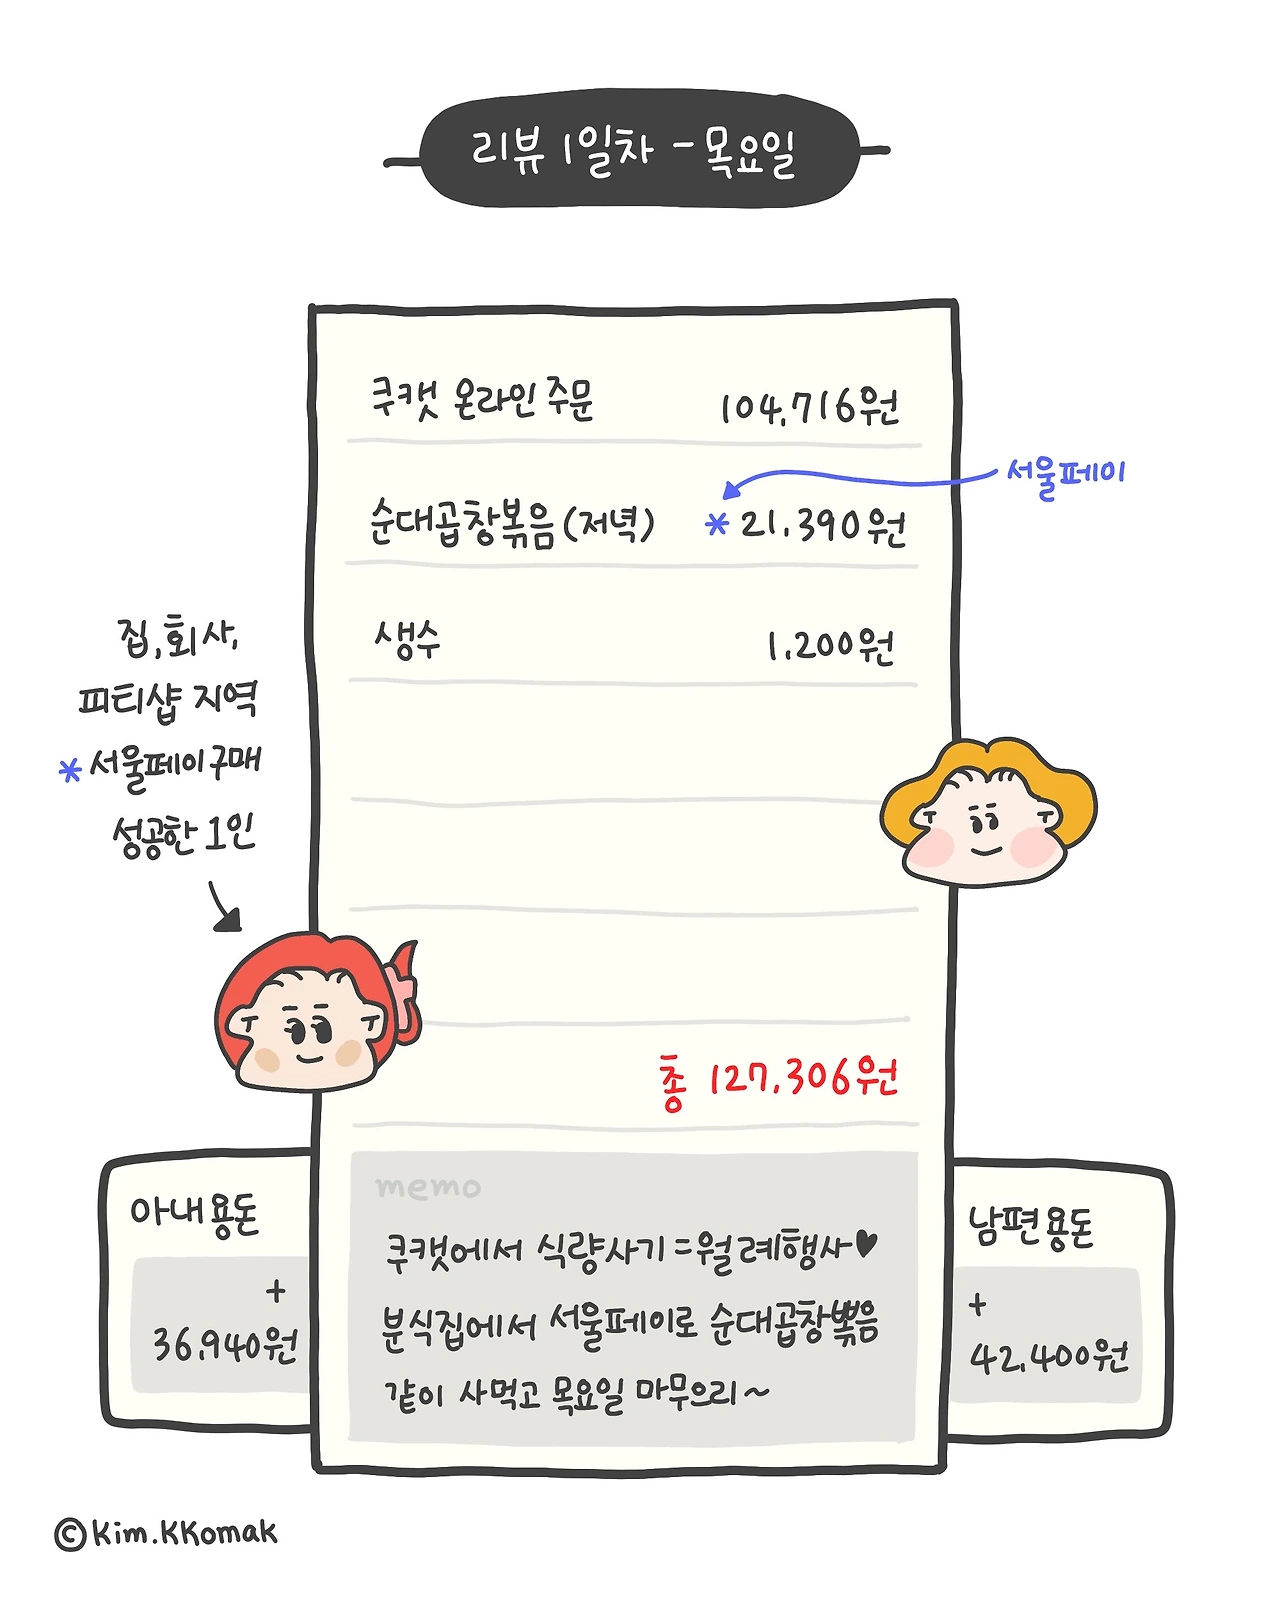 리뷰 1일차 - 목요일
쿠캣 온라인 주문 104,716원
서울페이
순대곱창볶음 (저녁) * 21,390원
생수 1,200원
집, 회사,
피티샵 지역
* 서울페이 구매
성공한 1인
총 127,306원
memo
쿠캣에서 식량사기 = 월례행사♥
분식집에서 서울페이로 순대곱창뽂음
같이 사먹고 목요일 마무으리~
아내 용돈
+
36,940원
남편 용돈
+
42,400원
© Kim.KKomak